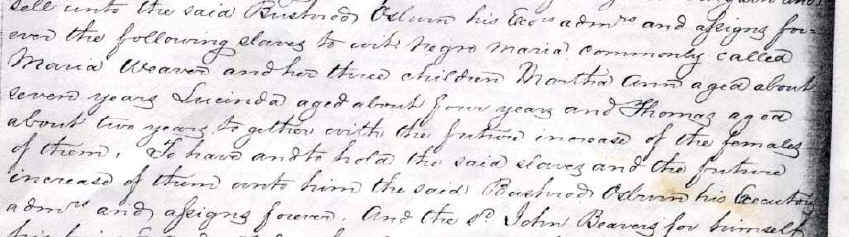 sell unto the said Bushrod Osburn his Exors admrs and assigns for-
ever the following slaves to wit: Negro Maria commonly called
Maria Weaver and her three children Martha Ann aged about
seven years Lucinda aged about four years and Thomas aged
about two years, together with the future increase of the females
of them. To have and to hold the said slaves and the future
increase of them unto him the said Bushrod Osburn his Executors
admrs and assigns forever. And the sd. John Beavers for himself
his